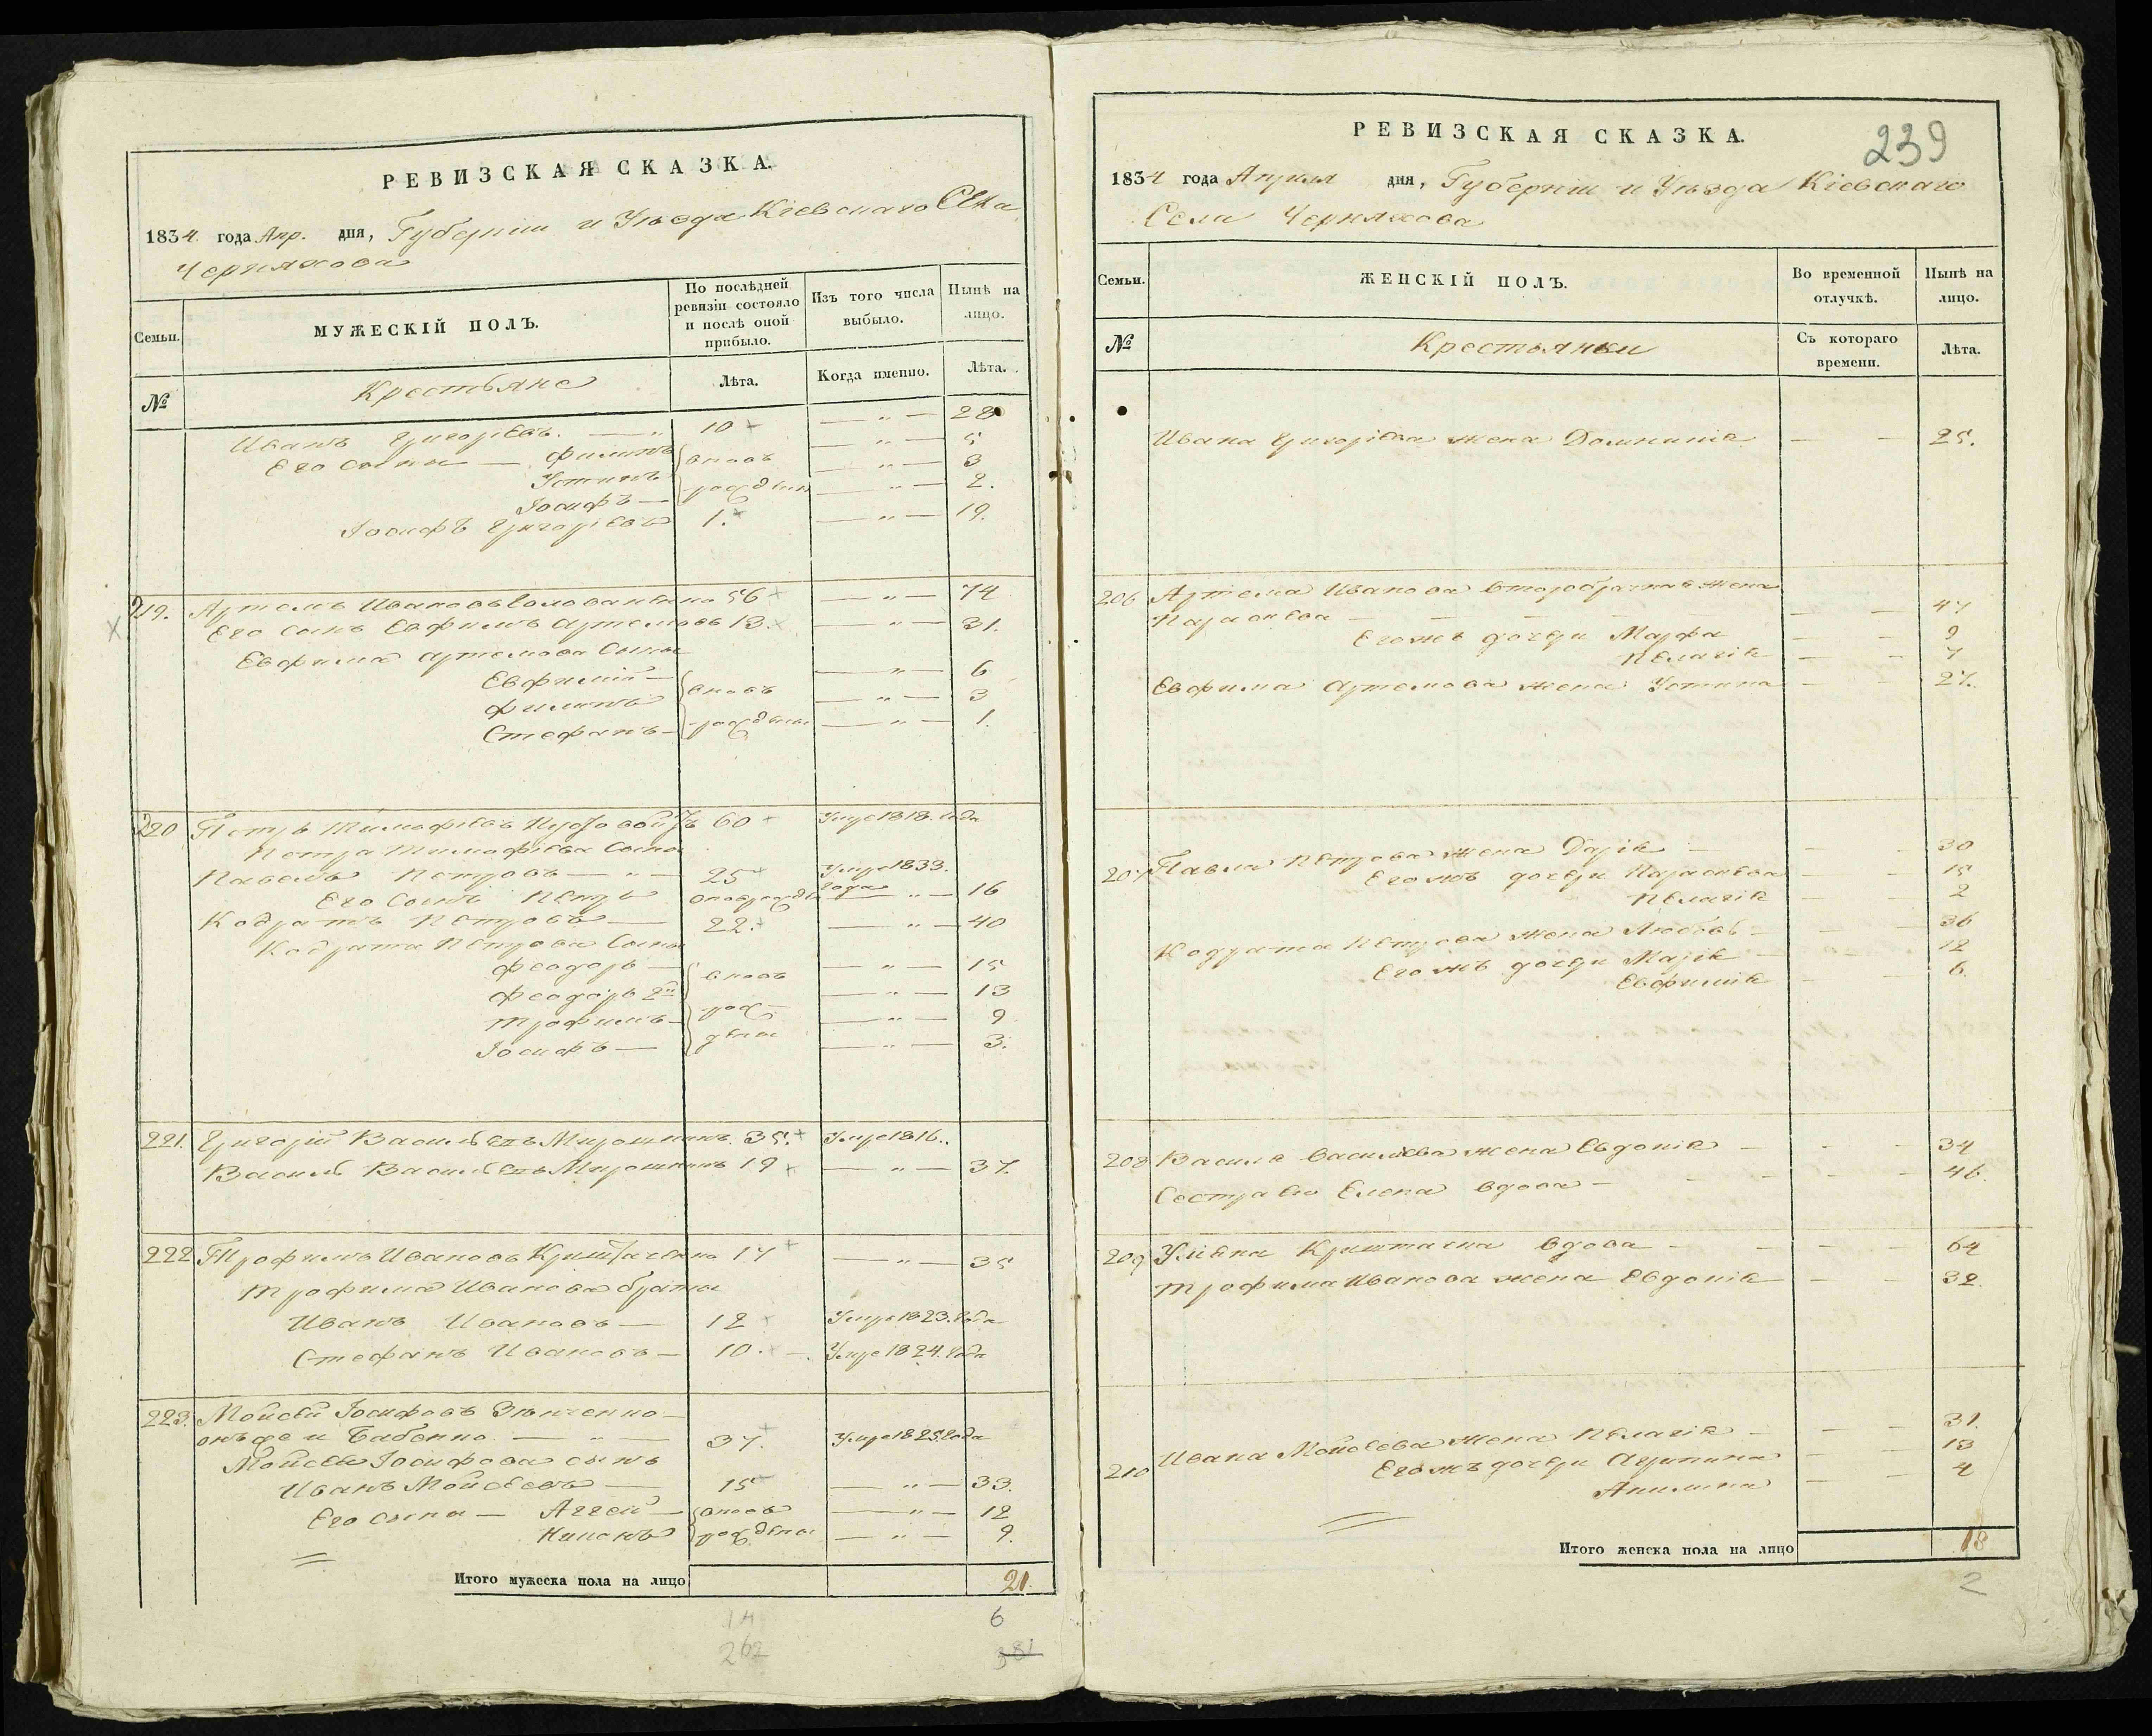 РЕВИЗСКАЯ СКАЗКА.
1834 года Апр. дня, Губерніи и Уѣзда Кіевскаго Села
Черняхова
Семьи.
МУЖЕСКІЙ ПОЛЪ.
По послѣдней ревизіи состояло и послѣ оной прибыло.
Изъ того числа выбыло.
Нынѣ на лицо.
№
Крестьяне
Лѣта.
Когда именно.
Лѣта.
Иванъ Григорьевъ. — „ 10 — „ — 28
Его сыны — Филипъ вновь — „ — 5
Устинъ — „ — 3
Іосифъ — рожденны — „ — 2.
Іосифъ Григорьевъ 1. — „ — 19.
219. Артемъ Ивановъ 56 — „ — 74
Его сынъ Евфимъ Артемовъ 13. — „ — 31.
Евфима Артемова сыны
Евфимій — — „ — 6
Филипъ вновь — „ — 3
Стефанъ — рожденны — „ — 1.
220 Петръ Тимофѣевъ 60 Умре 1818. года
Петра Тимофѣева сыны
Павелъ Петровъ — „ — 25 Умре 1833. года
Его сынъ Петръ — „ — 16
Кодратъ Петровъ — 22. — „ — 40
Кодрата Петрова сыны
Феодоръ — вновь — „ — 15
Феодоръ 2й — „ — 13
Трофимъ — рож — „ — 9
Іосифъ — дены — „ — 3.
221. Григорій Васильевъ Мирошникъ. 35. Умре 1816.
Василь Васильевъ Мирошникъ 19 — „ — 37.
222 Трофимъ Ивановъ 17 — „ — 35
Трофима Иванова братья
Иванъ Ивановъ — 12 Умре 1823. года
Стефанъ Ивановъ — 10. — Умре 1824. года
223. Мойсей Іосифовъ Зѣнченко —
онъ же и Бабенко — „ — 37. Умре 1825 года
Мойсея Іосифова сынъ
Иванъ Мойсеевъ — 15 — „ — 33.
Его сыны — Аггей — вновь — „ — 12
Никонъ рождены — „ — 9.
Итого мужеска пола на лицо 21.
14 6
262 381
239
РЕВИЗСКАЯ СКАЗКА.
1834 года Апреля дня, Губерніи и Уѣзда Кіевскаго
Села Черняхова
Семьи.
ЖЕНСКІЙ ПОЛЪ.
Во временной отлучкѣ.
Нынѣ на лицо.
№
Крестьянки
Съ котораго времени.
Лѣта.
Ивана Григорьева жена Домникія — — 25.
206 Артема Иванова второбрачная жена
Параскева — — 47
Егожъ дочери Марфа — — 9
Пелагія — — 7
Евфима Артемова жена Устина — — 27.
207 Павла Петрова жена Дарія — — — 30
Егожъ дочери Параскева — — 15
Пелагія — — 2
Кодрата Петрова жена Любовь — — — 36
Егожъ дочери Марія — — — 12
Евфимія — — 6.
208 Василя Васильева жена Евдокія — — — 34
Сестра его Елена вдова — — — — — 46.
209 Уліяна вдова — — — — 64
Трофима Иванова жена Евдокія — — 32.
210 Ивана Мойсеева жена Пелагія — — — 31.
Егожъ дочери Агрипина — — 13
Акилина — — 4
Итого женска пола на лицо 18
2